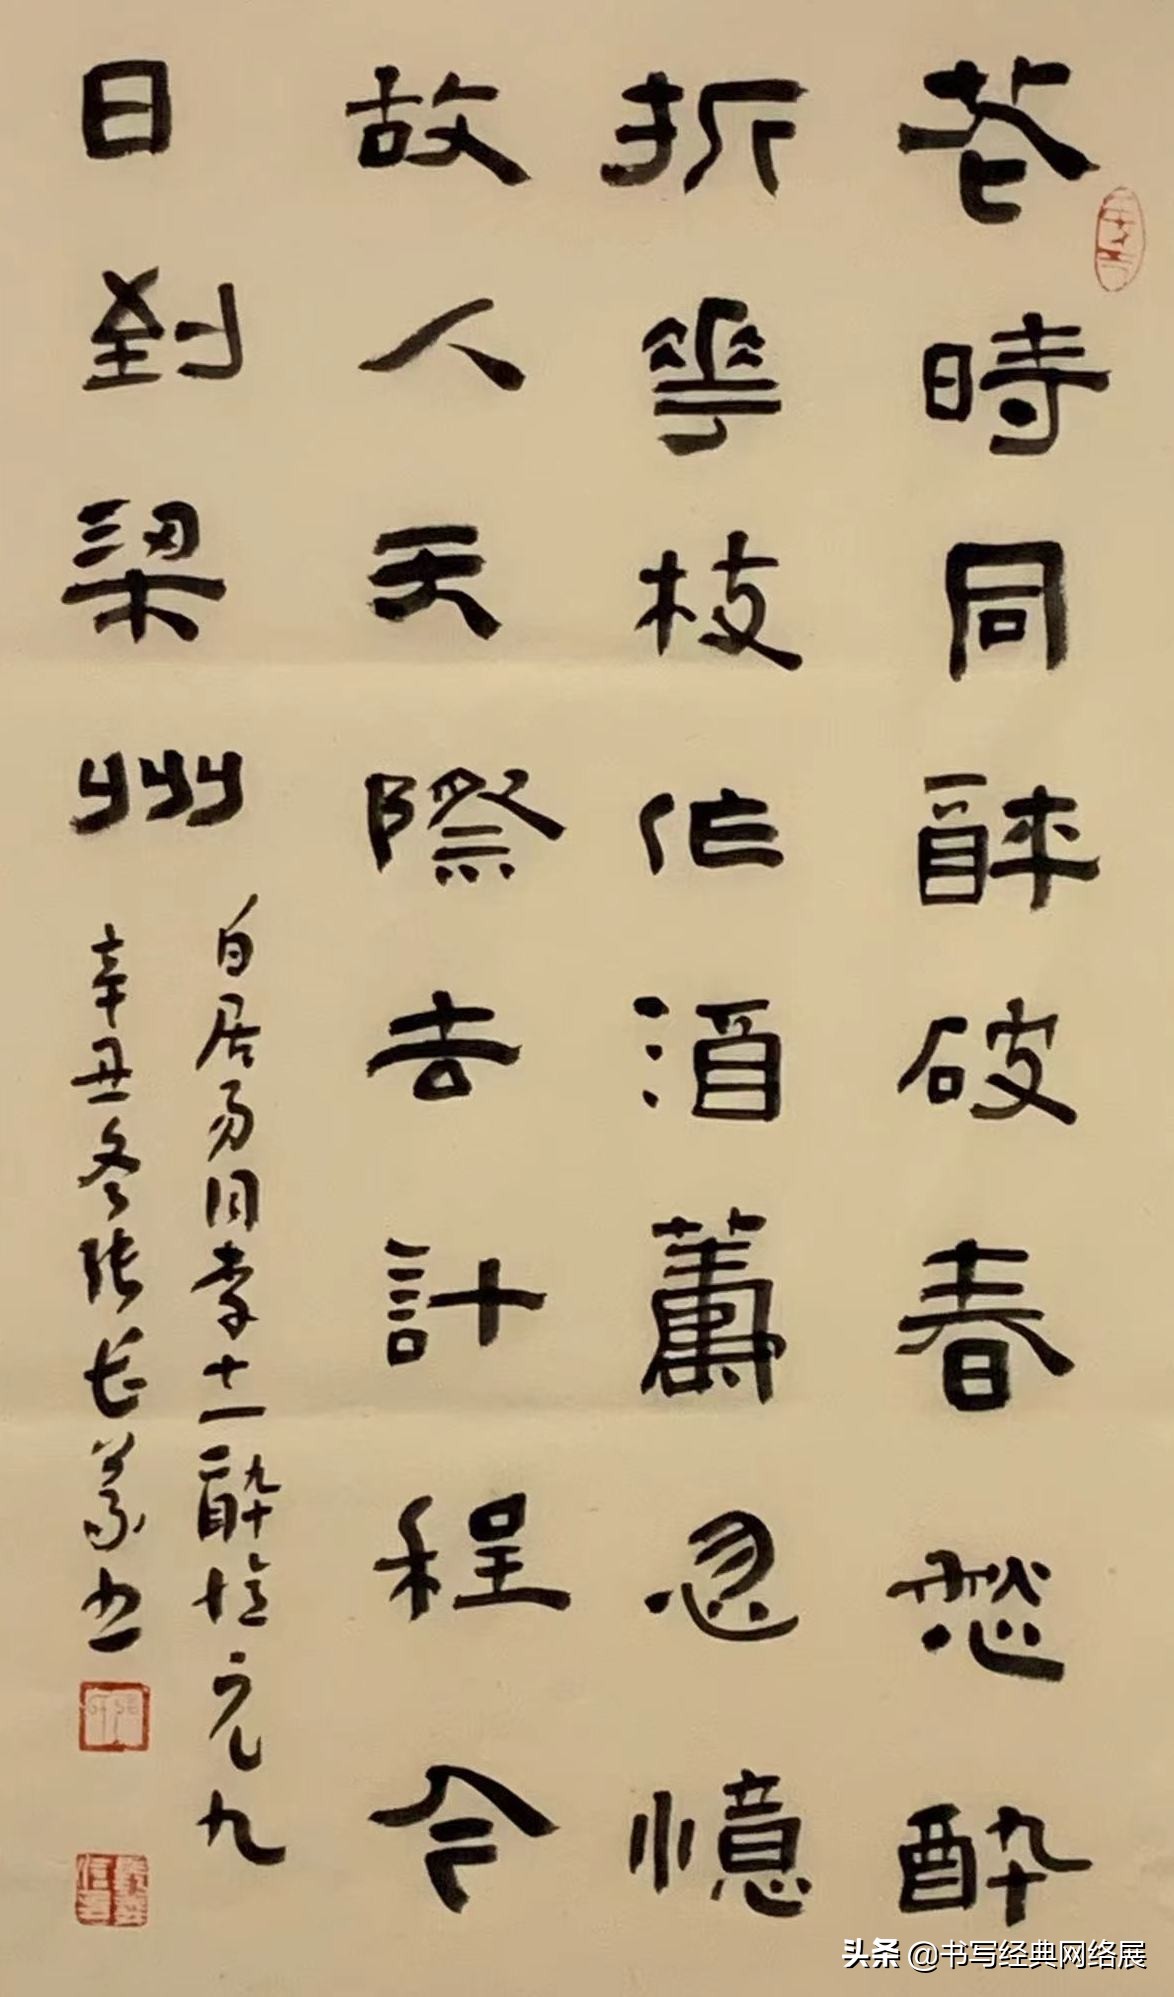 花時同醉破春愁醉
折華枝作酒蕭忽憶
故人天際去計程今
日到梁州
白居易同李十一醉憶元九
辛丑冬张长義书
头条 @书写经典网络展